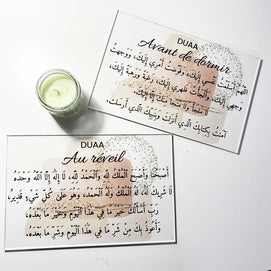 DUAA
Avant de dormir
اللَّهُمَّ أَسْلَمْتُ نَفْسِي إِلَيْكَ، وَفَوَّضْتُ أَمْرِي إِلَيْكَ، وَوَجَّهْتُ
وَجْهِي إِلَيْكَ، وَأَلْجَأْتُ ظَهْرِي إِلَيْكَ، رَغْبَةً وَرَهْبَةً إِلَيْكَ،
لَا مَلْجَأَ وَلَا مَنْجَا مِنْكَ إِلَّا إِلَيْكَ،
آمَنْتُ بِكِتَابِكَ الَّذِي أَنْزَلْتَ وَبِنَبِيِّكَ الَّذِي أَرْسَلْتَ.
DUAA
Au réveil
أَصْبَحْنَا وَأَصْبَحَ الْمُلْكُ لِلَّهِ وَالْحَمْدُ لِلَّهِ، لَا إِلَهَ إِلَّا اللَّهُ وَحْدَهُ
لَا شَرِيكَ لَهُ، لَهُ الْمُلْكُ وَلَهُ الْحَمْدُ، وَهُوَ عَلَى كُلِّ شَيْءٍ قَدِيرٌ،
رَبِّ أَسْأَلُكَ خَيْرَ مَا فِي هَذَا الْيَوْمِ وَخَيْرَ مَا بَعْدَهُ،
وَأَعُوذُ بِكَ مِنْ شَرِّ مَا فِي هَذَا الْيَوْمِ وَشَرِّ مَا بَعْدَهُ،